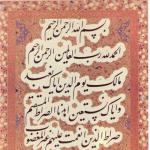 بسم الله الرحمن الرحيم
الحمد لله رب العالمين الرحمن الرحيم
ملك يوم الدين اياك نعبد
و اياك نستعين اهدنا الصراط المستقيم
صراط الذين انعمت عليهم غير المغضوب